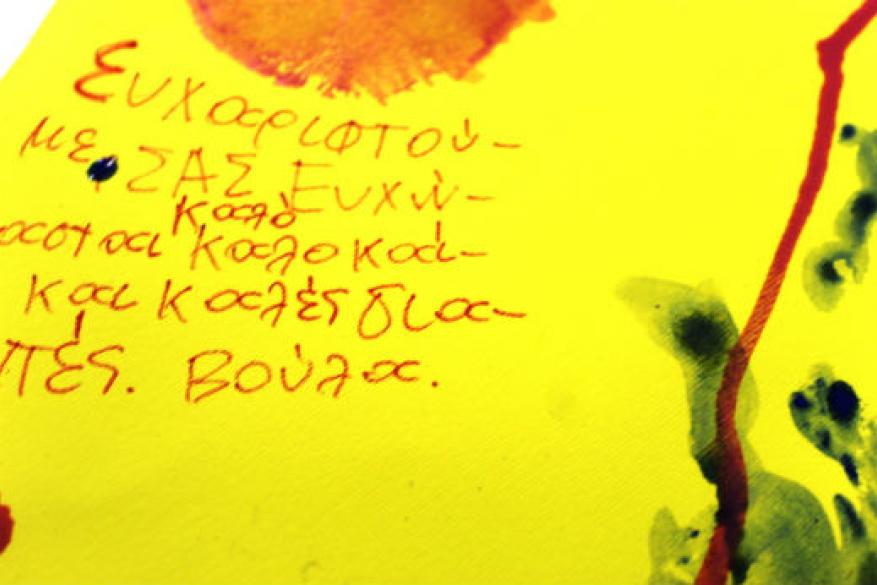 Ευχαριστού-
με ΣΑΣ Ευχό-
μασται καλό
καλοκαί-
και καλές δια-
πές. Βούλα.